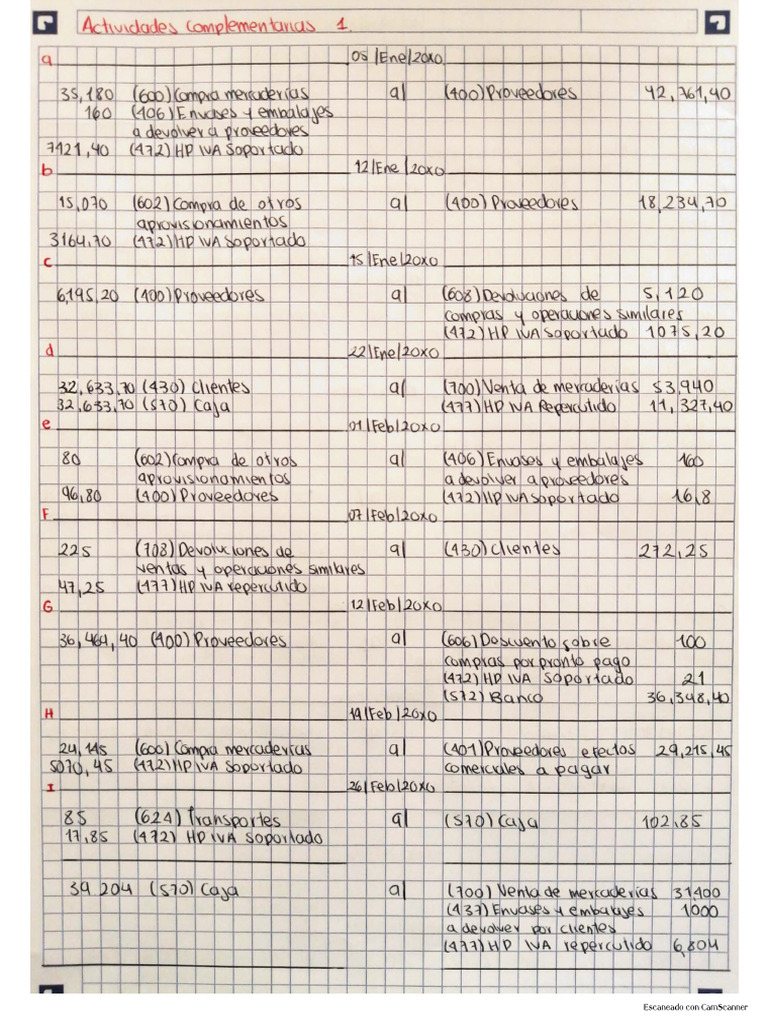 Actividades complementarias 1.
a 05/Ene/20x0
35,180 (600) Compra mercaderías a| (400) Proveedores 42,761,40
160 (406) Envases y embalajes
a devolver a proveedores
7421,40 (472) HP IVA Soportado
b 12/Ene/20x0
15,070 (602) Compra de otros a| (400) Proveedores 18,234,70
aprovisionamientos
3164,70 (472) HP IVA Soportado
c 15/Ene/20x0
6,195,20 (400) Proveedores a| (608) Devoluciones de 5,120
compras y operaciones similares
(472) HP IVA Soportado 1075,20
d 22/Ene/20x0
32,633,70 (430) Clientes a| (700) Venta de mercaderías 53,940
32,633,70 (570) Caja (477) HP IVA Repercutido 11,327,40
e 01/Feb/20x0
80 (602) Compra de otros a| (406) Envases y embalajes 160
aprovisionamientos a devolver a proveedores
96,80 (400) Proveedores (472) HP IVA Soportado 16,8
F 07/Feb/20x0
225 (708) Devoluciones de a| (430) Clientes 272,25
ventas y operaciones similares
47,25 (477) HP IVA repercutido
G 12/Feb/20x0
36,464,40 (400) Proveedores a| (606) Descuento sobre 100
compras por pronto pago
(472) HP IVA Soportado 21
(572) Banco 36,348,40
H 19/Feb/20x0
24,145 (600) Compra mercaderías a| (401) Proveedores efectos 29,215,45
5070,45 (472) HP IVA Soportado comerciales a pagar
I 26/Feb/20x0
85 (624) Transportes a| (570) Caja 102,85
17,85 (472) HP IVA Soportado
39,204 (570) Caja a| (700) Venta de mercaderías 31,400
(437) Envases y embalajes 1000
a devolver por clientes
(477) HP IVA repercutido 6,804
Escaneado con CamScanner